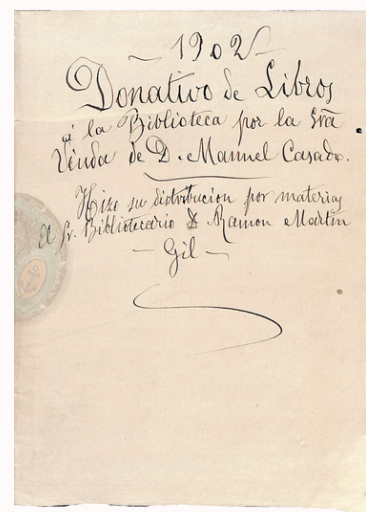 — 1902 —
Donativo de Libros
á la Biblioteca por la Sra̅.
Viuda de D. Manuel Casado.
Hizo su distribucion por materias
el Sr. Bibliotecario D Ramon Martin
— Gil —